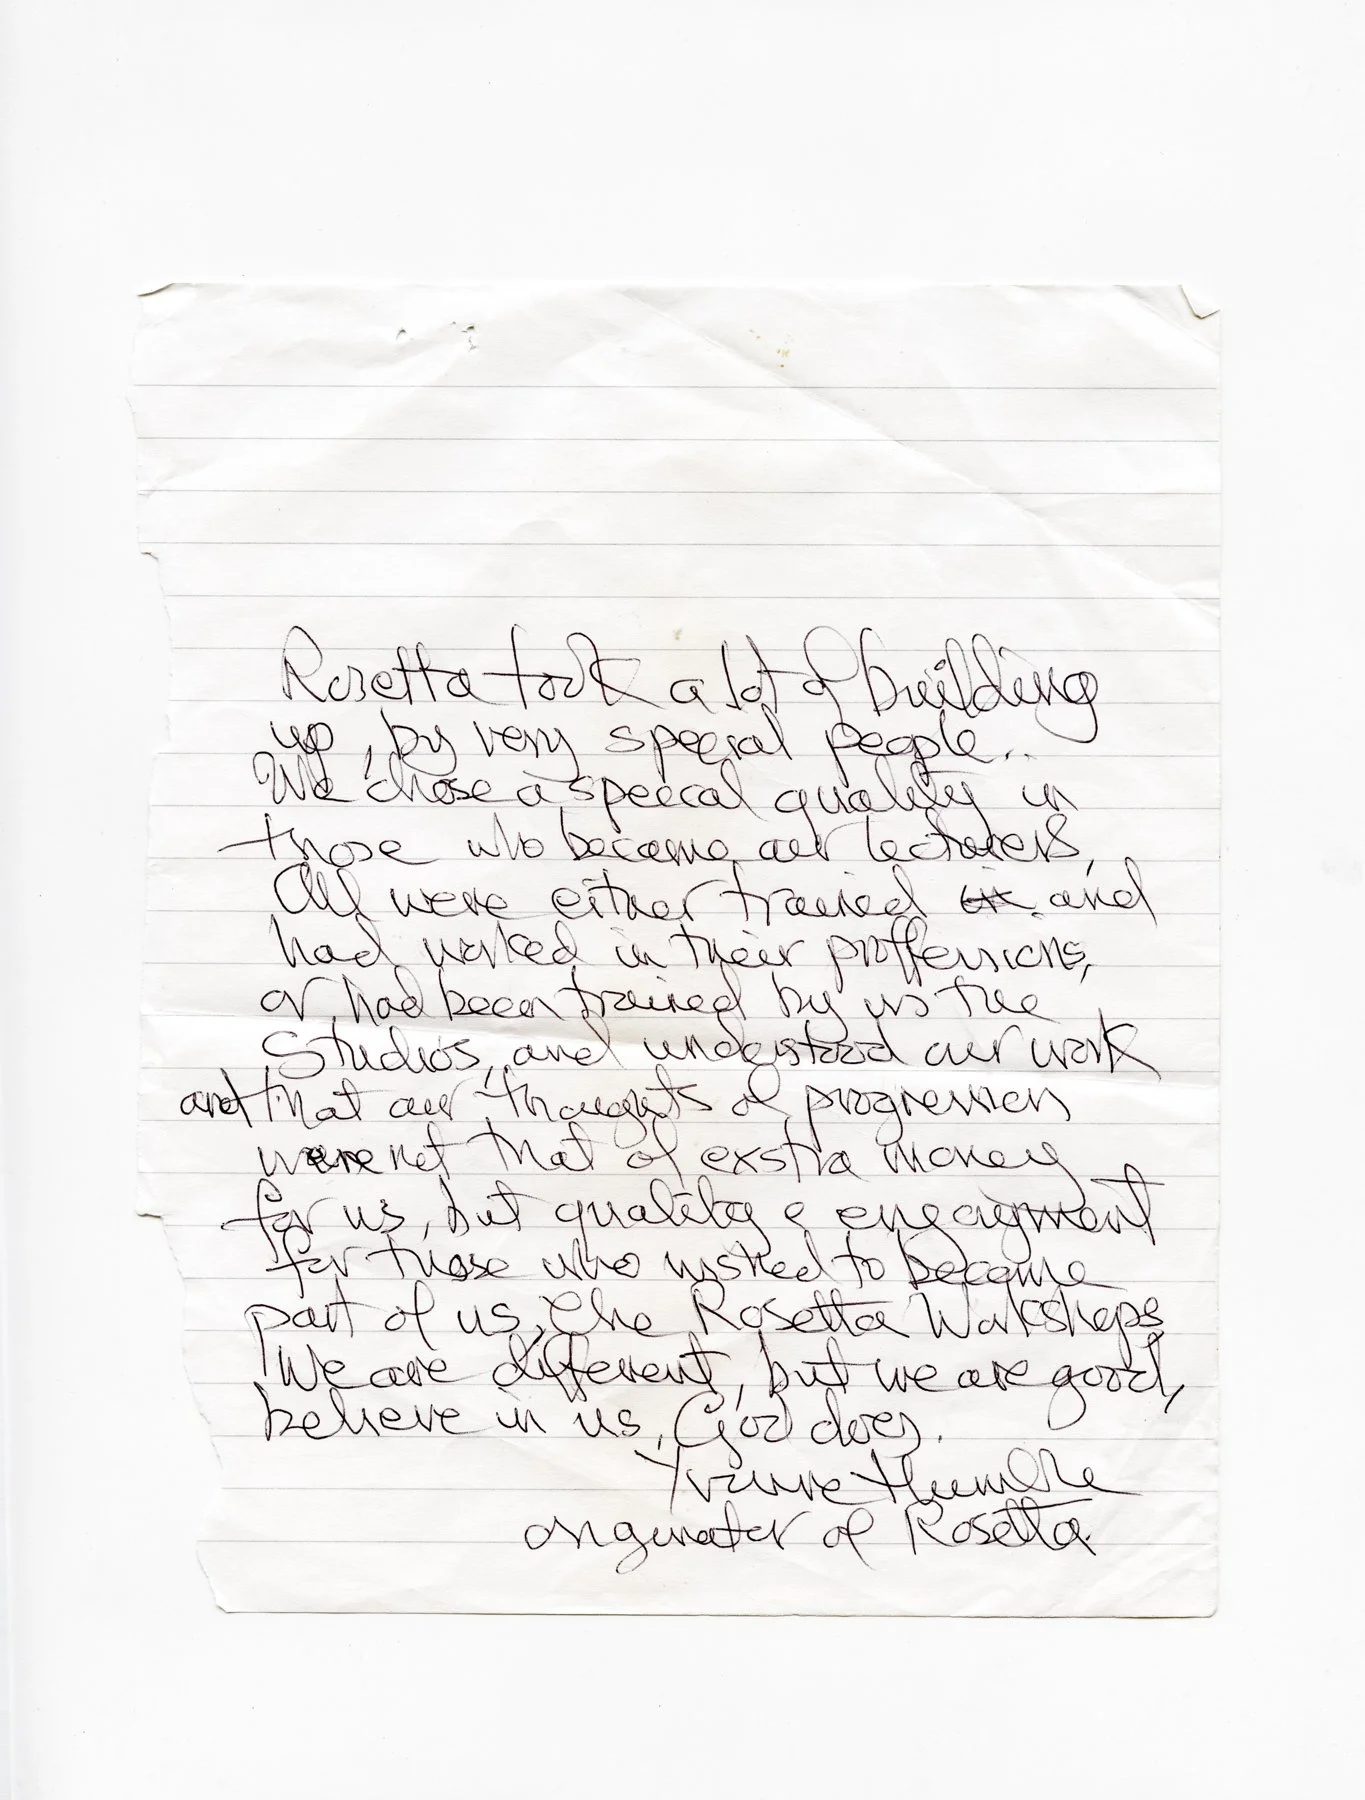 Rosetta took a lot of building
up, by very special people..
We chose a special quality in
those who became our lecturers,
All were either trained and
had worked in their proffessions,
or had been trained by us the
Studios, and understood our work
and that our thoughts of progression
were not that of exstra money
for us, but quality & engagment
for those who wished to become
part of us, the Rosetta Workshops
We are different, but we are good,
believe in us, God does.
Yvonne Humble
originator of Rosetta.